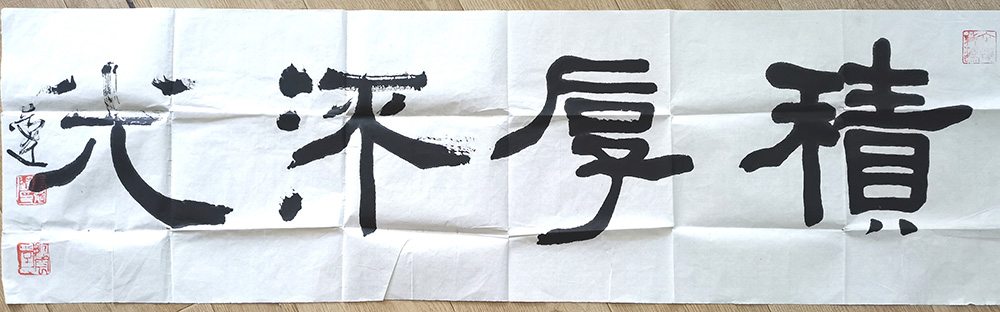 積厚流光